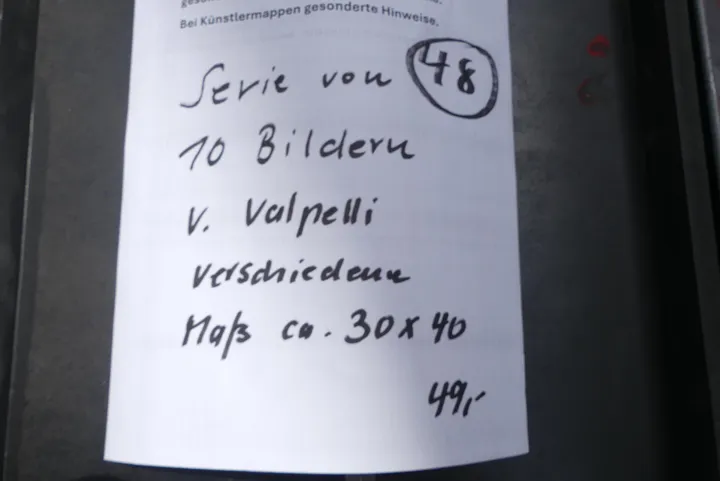 Bei Künstlermappen gesonderte Hinweise.
Serie von 48
10 Bildern
v. Valpelli
verschiedene
Maß ca. 30 x 40
49,-